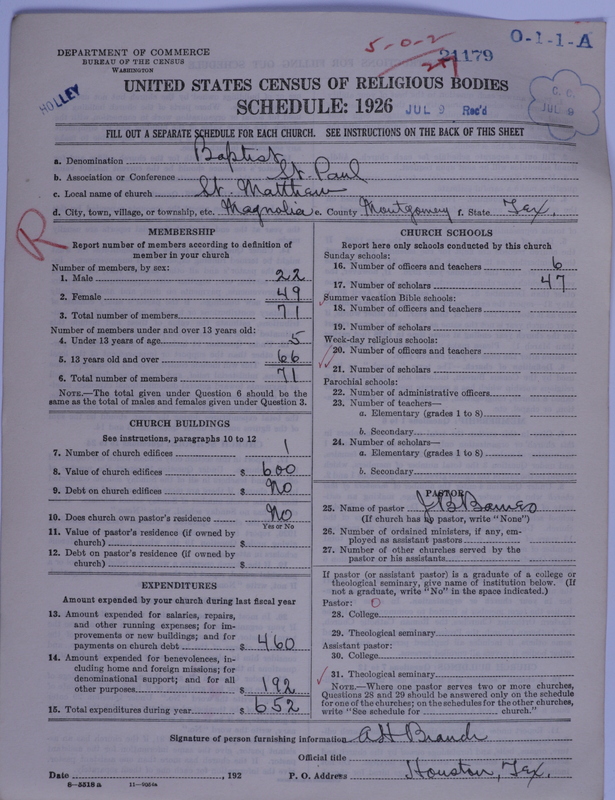 5-0-2
21179
O-1-1-A
DEPARTMENT OF COMMERCE
BUREAU OF THE CENSUS
WASHINGTON
HOLLEY
UNITED STATES CENSUS OF RELIGIOUS BODIES
SCHEDULE: 1926
JUL 9 Rec'd
C. C.
JUL 9
FILL OUT A SEPARATE SCHEDULE FOR EACH CHURCH. SEE INSTRUCTIONS ON THE BACK OF THIS SHEET
a. Denomination Baptist
b. Association or Conference St. Paul
c. Local name of church St. Matthew
d. City, town, village, or township, etc. Magnolia e. County Montgomery f. State Tex.
R
MEMBERSHIP
Report number of members according to definition of
member in your church
Number of members, by sex:
1. Male 22
2. Female 49
3. Total number of members 71
Number of members under and over 13 years old:
4. Under 13 years of age 5
5. 13 years old and over 66
6. Total number of members 71
NOTE.—The total given under Question 6 should be the
same as the total of males and females given under Question 3.
CHURCH BUILDINGS
See instructions, paragraphs 10 to 12
7. Number of church edifices 1
8. Value of church edifices $ 600
9. Debt on church edifices $ No
10. Does church own pastor's residence No
Yes or No
11. Value of pastor's residence (if owned by
church) $
12. Debt on pastor's residence (if owned by
church) $
EXPENDITURES
Amount expended by your church during last fiscal year
13. Amount expended for salaries, repairs,
and other running expenses; for im-
provements or new buildings; and for
payments on church debt $ 460
14. Amount expended for benevolences, in-
cluding home and foreign missions; for
denominational support; and for all
other purposes $ 192
15. Total expenditures during year $ 652
CHURCH SCHOOLS
Report here only schools conducted by this church
Sunday schools:
16. Number of officers and teachers 6
17. Number of scholars 47
Summer vacation Bible schools:
18. Number of officers and teachers
19. Number of scholars
Week-day religious schools:
20. Number of officers and teachers
21. Number of scholars
Parochial schools:
22. Number of administrative officers
23. Number of teachers—
a. Elementary (grades 1 to 8)
b. Secondary
24. Number of scholars—
a. Elementary (grades 1 to 8)
b. Secondary
PASTOR
25. Name of pastor J B Barnes
(If church has no pastor, write "None")
26. Number of ordained ministers, if any, em-
ployed as assistant pastors
27. Number of other churches served by the
pastor or his assistants
If pastor (or assistant pastor) is a graduate of a college or
theological seminary, give name of institution below. (If
not a graduate, write "No" in the space indicated.)
Pastor: 0
28. College
29. Theological seminary
Assistant pastor:
30. College
31. Theological seminary
NOTE.—Where one pastor serves two or more churches,
Questions 28 and 29 should be answered only on the schedule
for one of the churches; on the schedules for the other churches,
write "See schedule for church."
Signature of person furnishing information A H Branch
Official title
Date , 192 P. O. Address Houston, Tex.
8—5518 a